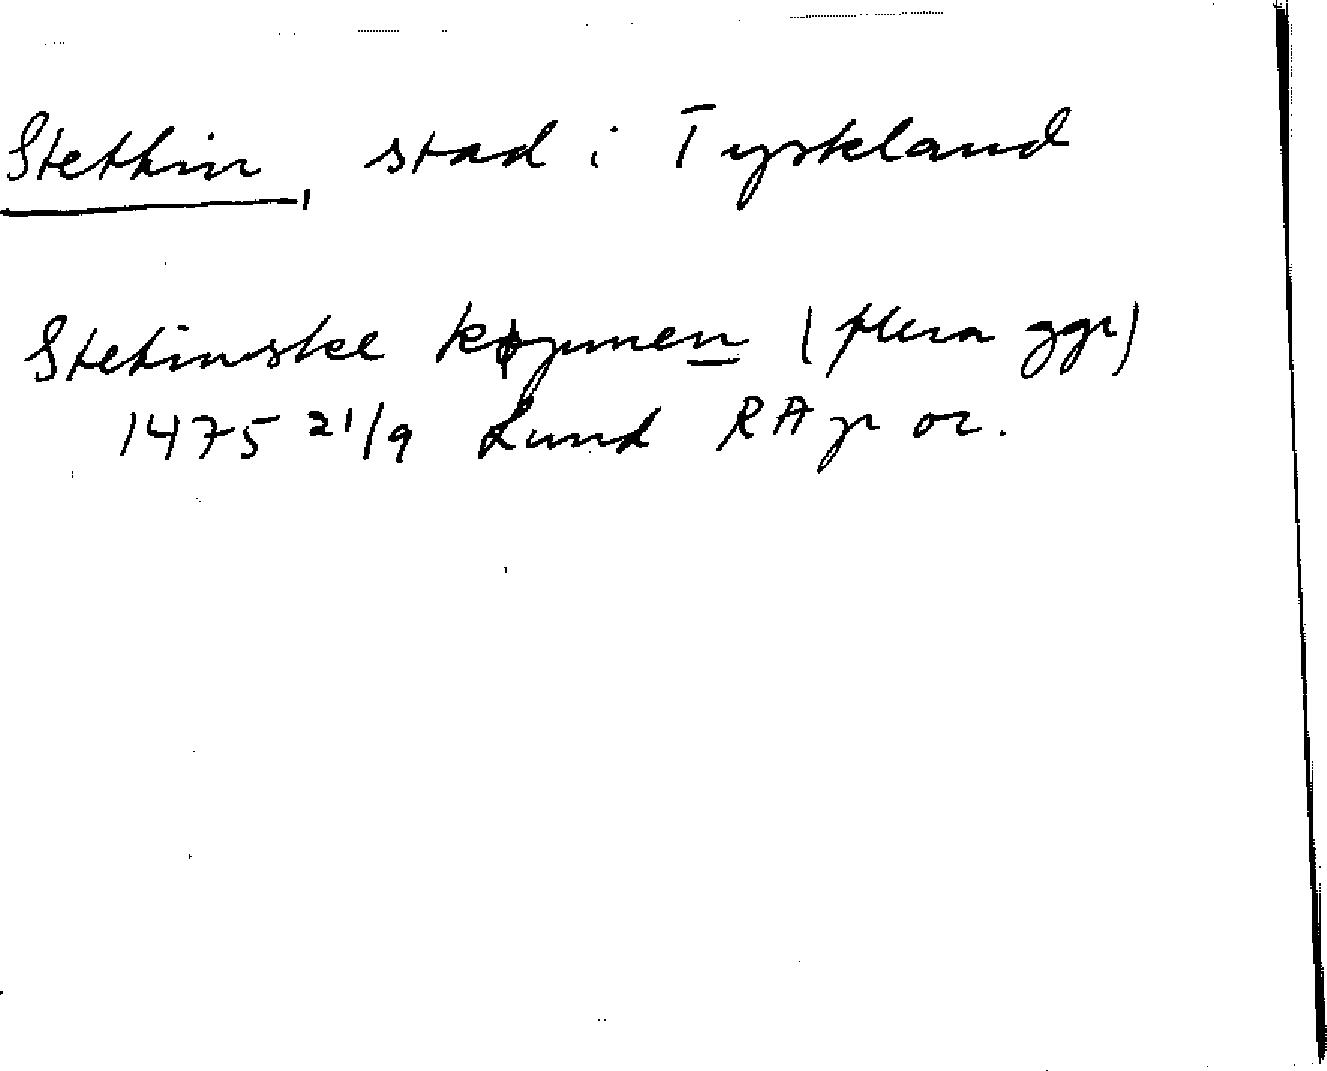 Stethin, stad i Tyskland
Stetinske køpmen (flera ggr)
1475 21/9 Lund RAp or.